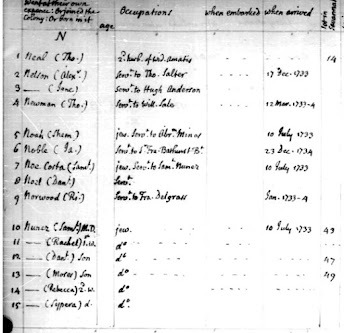 went at their own
expence: Orforced the
Colony: Or Born in it age Occupations when embarked when arrived Lot in Savannah
N
1 Neal (Tho.) 2. husb. of wd. Amatis 14
2 Nelson (Alexr.) Servt. to Tho. Salter 17 Dec. 1733
3 —— (Jane) Servt. to Hugh Anderson
4 Newman (Tho.) Servt. to Will. Sale 12 Mar. 1733-4
5 Noah (Shem) jew. Servt. to Abr. Minas 10 July 1733
6 Noble (Ja.) Servt. to Sr. Fra. Bathurst Bt. 23 Dec. 1734
7 Noe Costa (Saml.) jew. Servt. to Saml. Nunez 10 July 1733
8 Nost (Danl.) Servt.
9 Norwood (Ri.) Servt. to Fra. Delgrass Jan. 1733-4
10 Nunez (Saml.) M.D. jew. 10 July 1733 43
11 —— (Rachel) 1. w. do.
12 —— (Danl.) Son do. 47
13 —— (Moses) Son do. 49
14 —— (Rebecca) 2. w. do.
15 —— (Sypera) d. do.